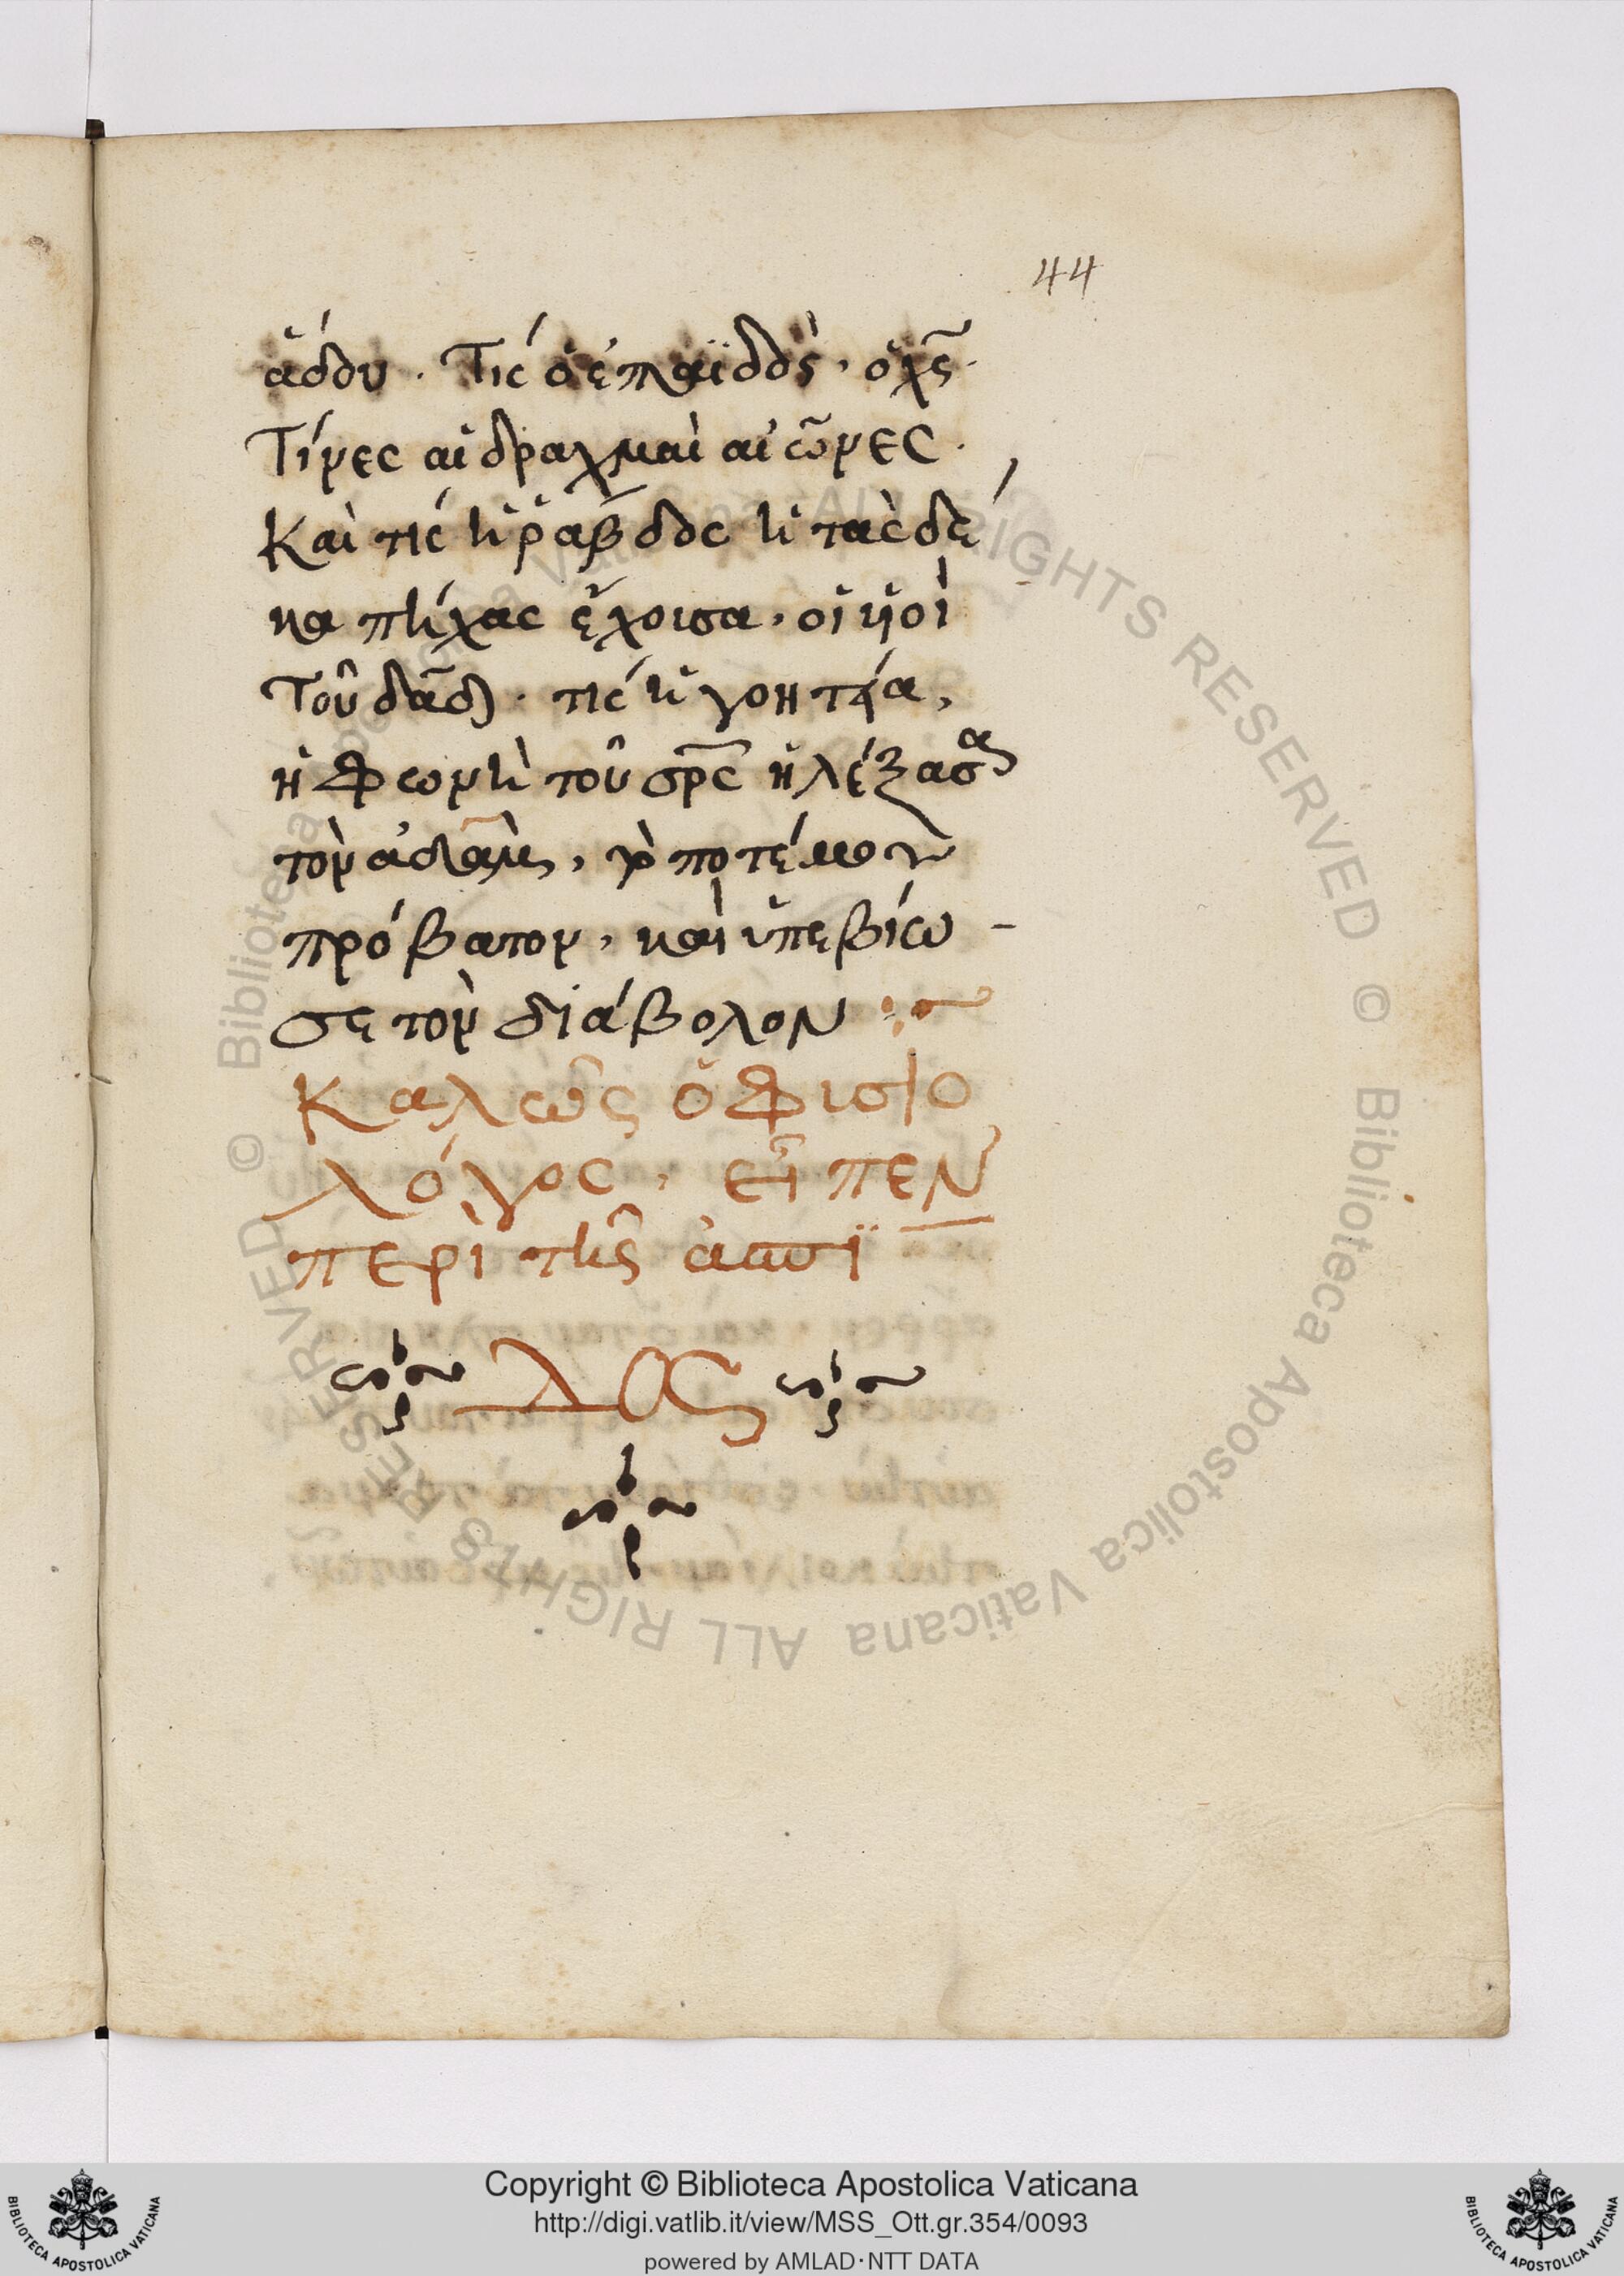 44
ἅδου. Τίς ὁ ἐπλαϊδὸς, ὁ χς̅.
Τίνες αἱ δραχμαὶ αἱ ὧνες.
Καὶ τίς ἡ ῥάβδος ἡ τὰς δέ
κα πήχας ἔχουσα, οἱ ὑϊοὶ
τοῦ δα̅δ. τίς ἡ γοητεία,
ἡ φωνὴ τοῦ σρ̅ς ἡ λέξασα
τὸν ἀδὰμ, γρ ποτέ μου
πρόβατον, καὶ ὑπεβίω-
σε τὸν διάβολον :~
Καλῶς ὁ φισιο
λόγος, εἶπεν
περὶ τῆς ἀσπϊ
δος
Copyright © Biblioteca Apostolica Vaticana
http://digi.vatlib.it/view/MSS_Ott.gr.354/0093
powered by AMLAD·NTT DATA
BIBLIOTECA APOSTOLICA VATICANA
BIBLIOTECA APOSTOLICA VATICANA
© Biblioteca Apostolica Vaticana ALL RIGHTS RESERVED © Biblioteca Apostolica Vaticana ALL RIGHTS RESERVED